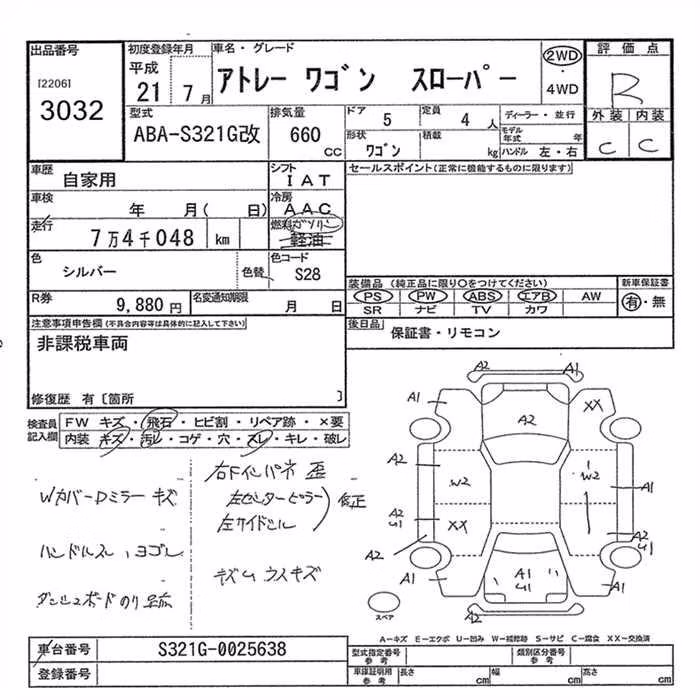 出品番号
[2206]
3032
初度登録年月
平成
21 7 月
車名・グレード
アトレー ワゴン スローパー
2WD
・
4WD
評価点
R
外装 内装
C C
型式
ABA-S321G改
排気量
660
cc
ドア
5
定員
4 人
ディーラー・並行
形状
ワゴン
積載
kg
モデル
年式
年
ハンドル 左・右
車歴
自家用
シフト
IAT
車検
年 月( 日)
冷房
AAC
走行
7万4千048 km
燃料
ガソリン
軽油
色
シルバー
色替
色コード
S28
セールスポイント(正常に機能するものに限ります)
R券
9,880 円
名変通知期限
月 日
装備品 (純正品に限り○をつけてください)
PS PW ABS エアB AW
SR ナビ TV カワ
新車保証書
有・無
注意事項申告欄(不具合内容等は具体的に記入して下さい)
非課税車両
修復歴 有〔箇所 〕
後日品
保証書・リモコン
検査員
記入欄
FW キズ・飛石・ヒビ割・リペア跡・×要
内装 キズ・汚レ・コゲ・穴・スレ・キレ・破レ
Wカバー Dミラー キズ
ハンドルスレ、ヨゴレ
ダッシュボード のり
右Fインパネ 歪
左センターピラー
左サイドシル
修正
キズ ウスキズ
A2 A1
A1 XX
A2
A2 W2 W2 A1
A2
U1
XX
A2
U1
A2
A1 A1
U1
A1
A2
スペア
A-キズ E-エクボ U-凹み W-補修跡 S-サビ C-腐食 XX-交換済
車台番号
S321G-0025638
登録番号
型式指定番号
参考
類別区分番号
参考
車庫証明用
参考
長さ
cm
幅
cm
高さ
cm